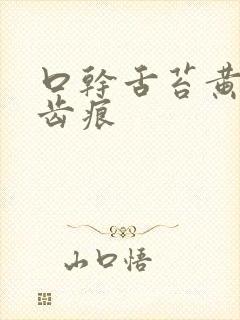 口幹舌苔黄
齿痕
山口悟